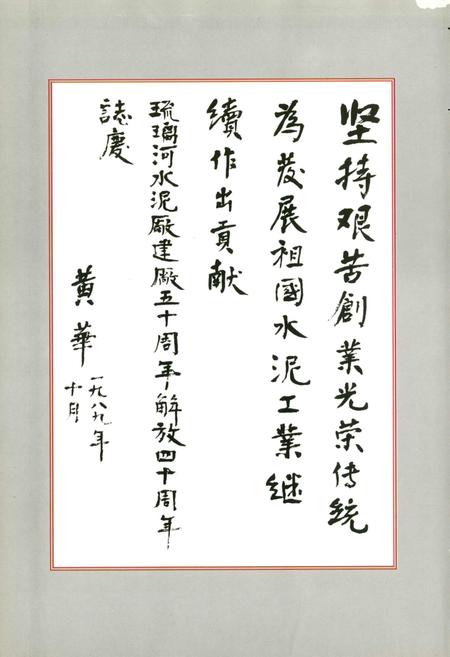 坚持艰苦創業光荣傳統
為发展祖國水泥工業継
續作出貢献
琉璃河水泥廠建廠五十周年解放四十周年
誌慶
黄華
一九八九年
十月